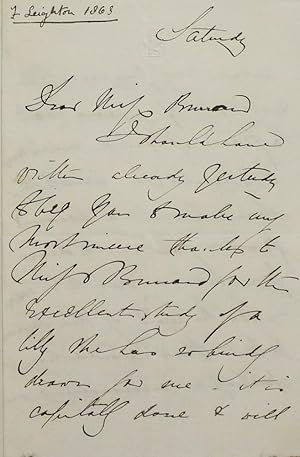 F Leighton 1863
Saturday
Dear Miss
I should have
written already yesterday
to beg you to make my
most sincere thanks to
Miss for the
excellent study of a
lily she has so kindly
drawn for me - it is
capitally done & will